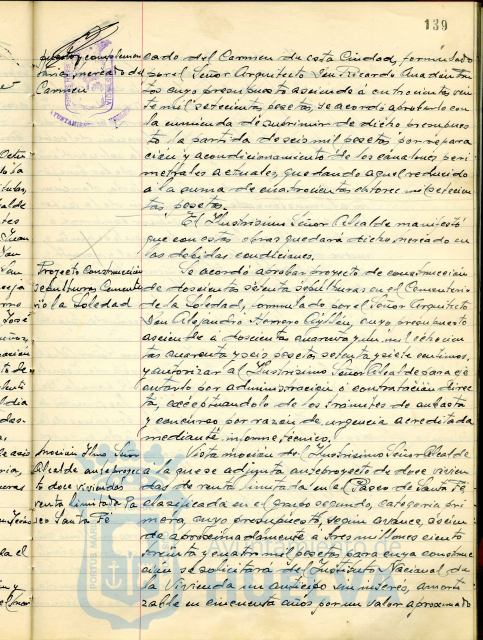 139
cado del Carmen de esta Ciudad, formulado
por el Señor Arquitecto Don Ricardo Anadón
cuyo presupuesto asciende a cuatrocientas vein
te mil setecientas pesetas, se acordó aprobarlo con
la enmienda de suprimir de dicho presupues
to la partida de seis mil pesetas por repara
ción y acondicionamiento de los canalones peri
metrales actuales, quedando aquel reducido
a la suma de cuatrocientas catorce mil setecien
tas pesetas.
El Ilustrísimo Señor Alcalde manifestó
que con estas obras quedará dicho mercado en
las debidas condiciones.
Proyecto Construcción
sepulturas Cemente
rio la Soledad
Se acordó aprobar proyecto de construcción
de doscientas setenta sepulturas en el Cementerio
de la Soledad, formulado por el Señor Arquitecto
Don Alejandro Herrero Ayllón, cuyo presupuesto
asciende a doscientas cuarenta y un mil ochocien
tas cuarenta y seis pesetas setenta y siete céntimos,
y autorizar al Ilustrísimo Señor Alcalde para eje
cutarlo por administración o contratación direc
ta, exceptuándolo de los trámites de subasta
y concurso por razón de urgencia acreditada
mediante informe técnico.
Moción Ilmo. Señor
Alcalde anteproyec
to doce viviendas
renta limitada Pa
seo Santa Fé
Vista moción del Ilustrísimo Señor Alcalde
a la que se adjunta anteproyecto de doce vivien
das de renta limitada en el Paseo de Santa Fé
clasificada en el grupo segundo, categoría pri
mera, cuyo presupuesto, según avance, ascien
de aproximadamente a tres millones ciento
treinta y cuatro mil pesetas para cuya construc
ción se solicitará del Instituto Nacional de
la Vivienda un anticipo sin interés, amorti
zable en cincuenta años por un valor aproximado